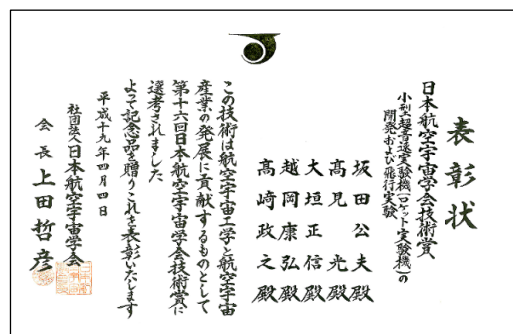 表彰状
日本航空宇宙学会技術賞
小型超音速実験機(ロケット実験機)の
開発および飛行実験
坂田公夫殿
高見光殿
大垣正信殿
越岡康弘殿
高崎政之殿
この技術は航空宇宙工学と航空宇宙
産業の発展に貢献するものとして
第十六回日本航空宇宙学会技術賞に
選考されました
よって記念品を贈りこれを表彰いたします
平成十九年四月四日
社団法人日本航空宇宙学会
会長上田哲彦